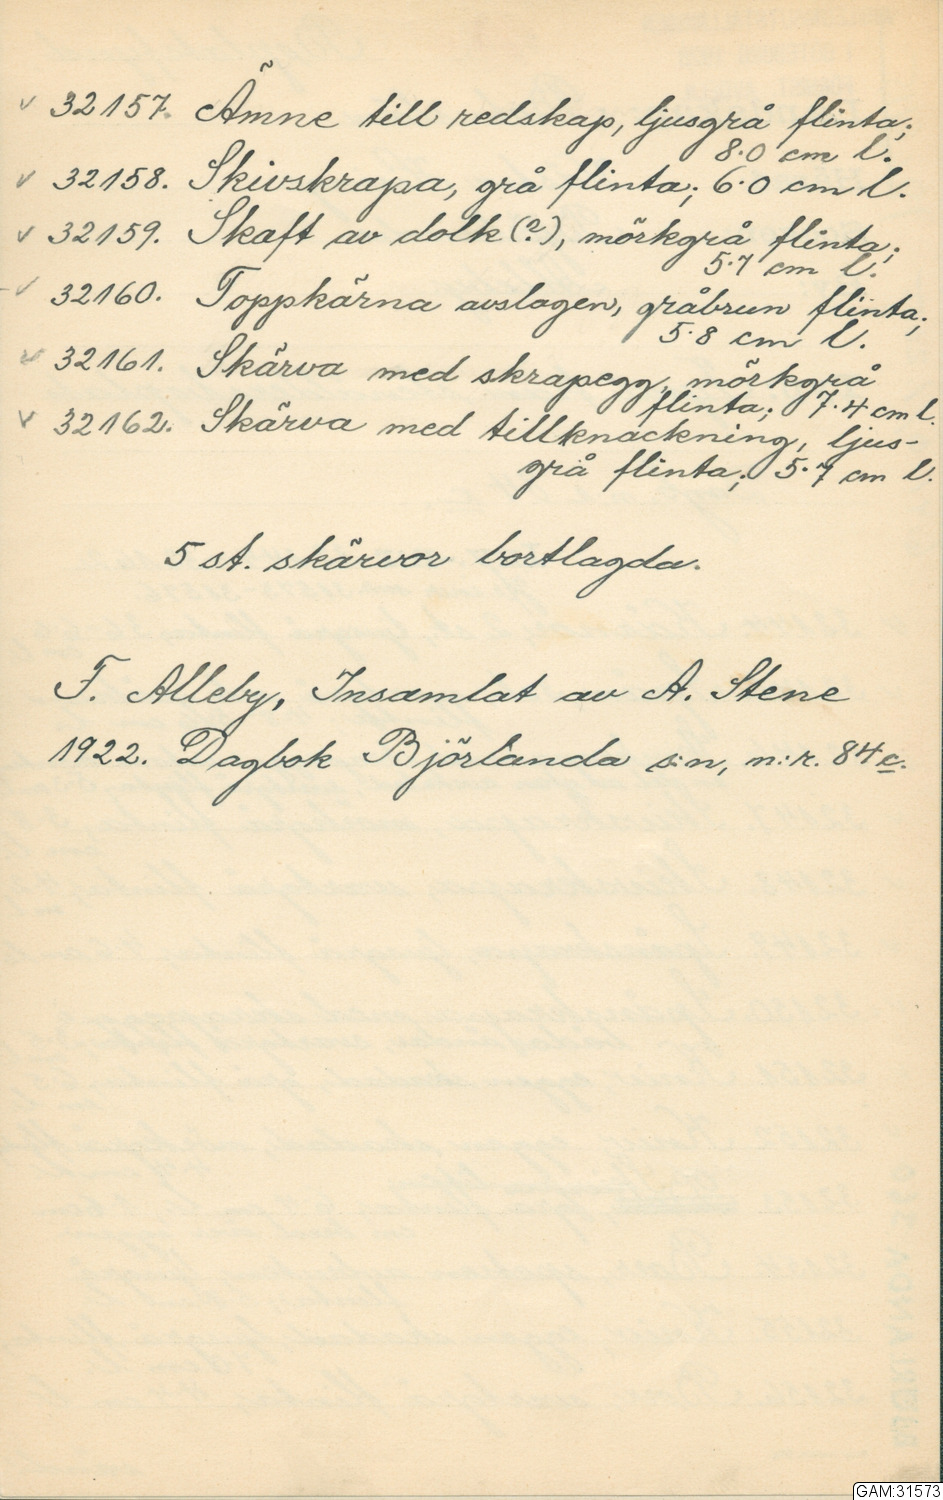 v 32157. Ämne till redskap, ljusgrå flinta;
8.0 cm l.
v 32158. Skivskrapa, grå flinta; 6.0 cm l.
v 32159. Skaft av dolk (?), mörkgrå flinta;
5.7 cm l.
v 32160. Toppkärna avslagen, gråbrun flinta;
5.8 cm l.
v 32161. Skärva med skrapegg, mörkgrå
flinta; 7.4 cm l.
v 32162. Skärva med tillknackning, ljus-
grå flinta; 5.7 cm l.
5 st. skärvor bortlagda.
F. Alleby, Insamlat av A. Stene
1922. Dagbok Björlanda s:n, n:r. 84c.
GAM:31573